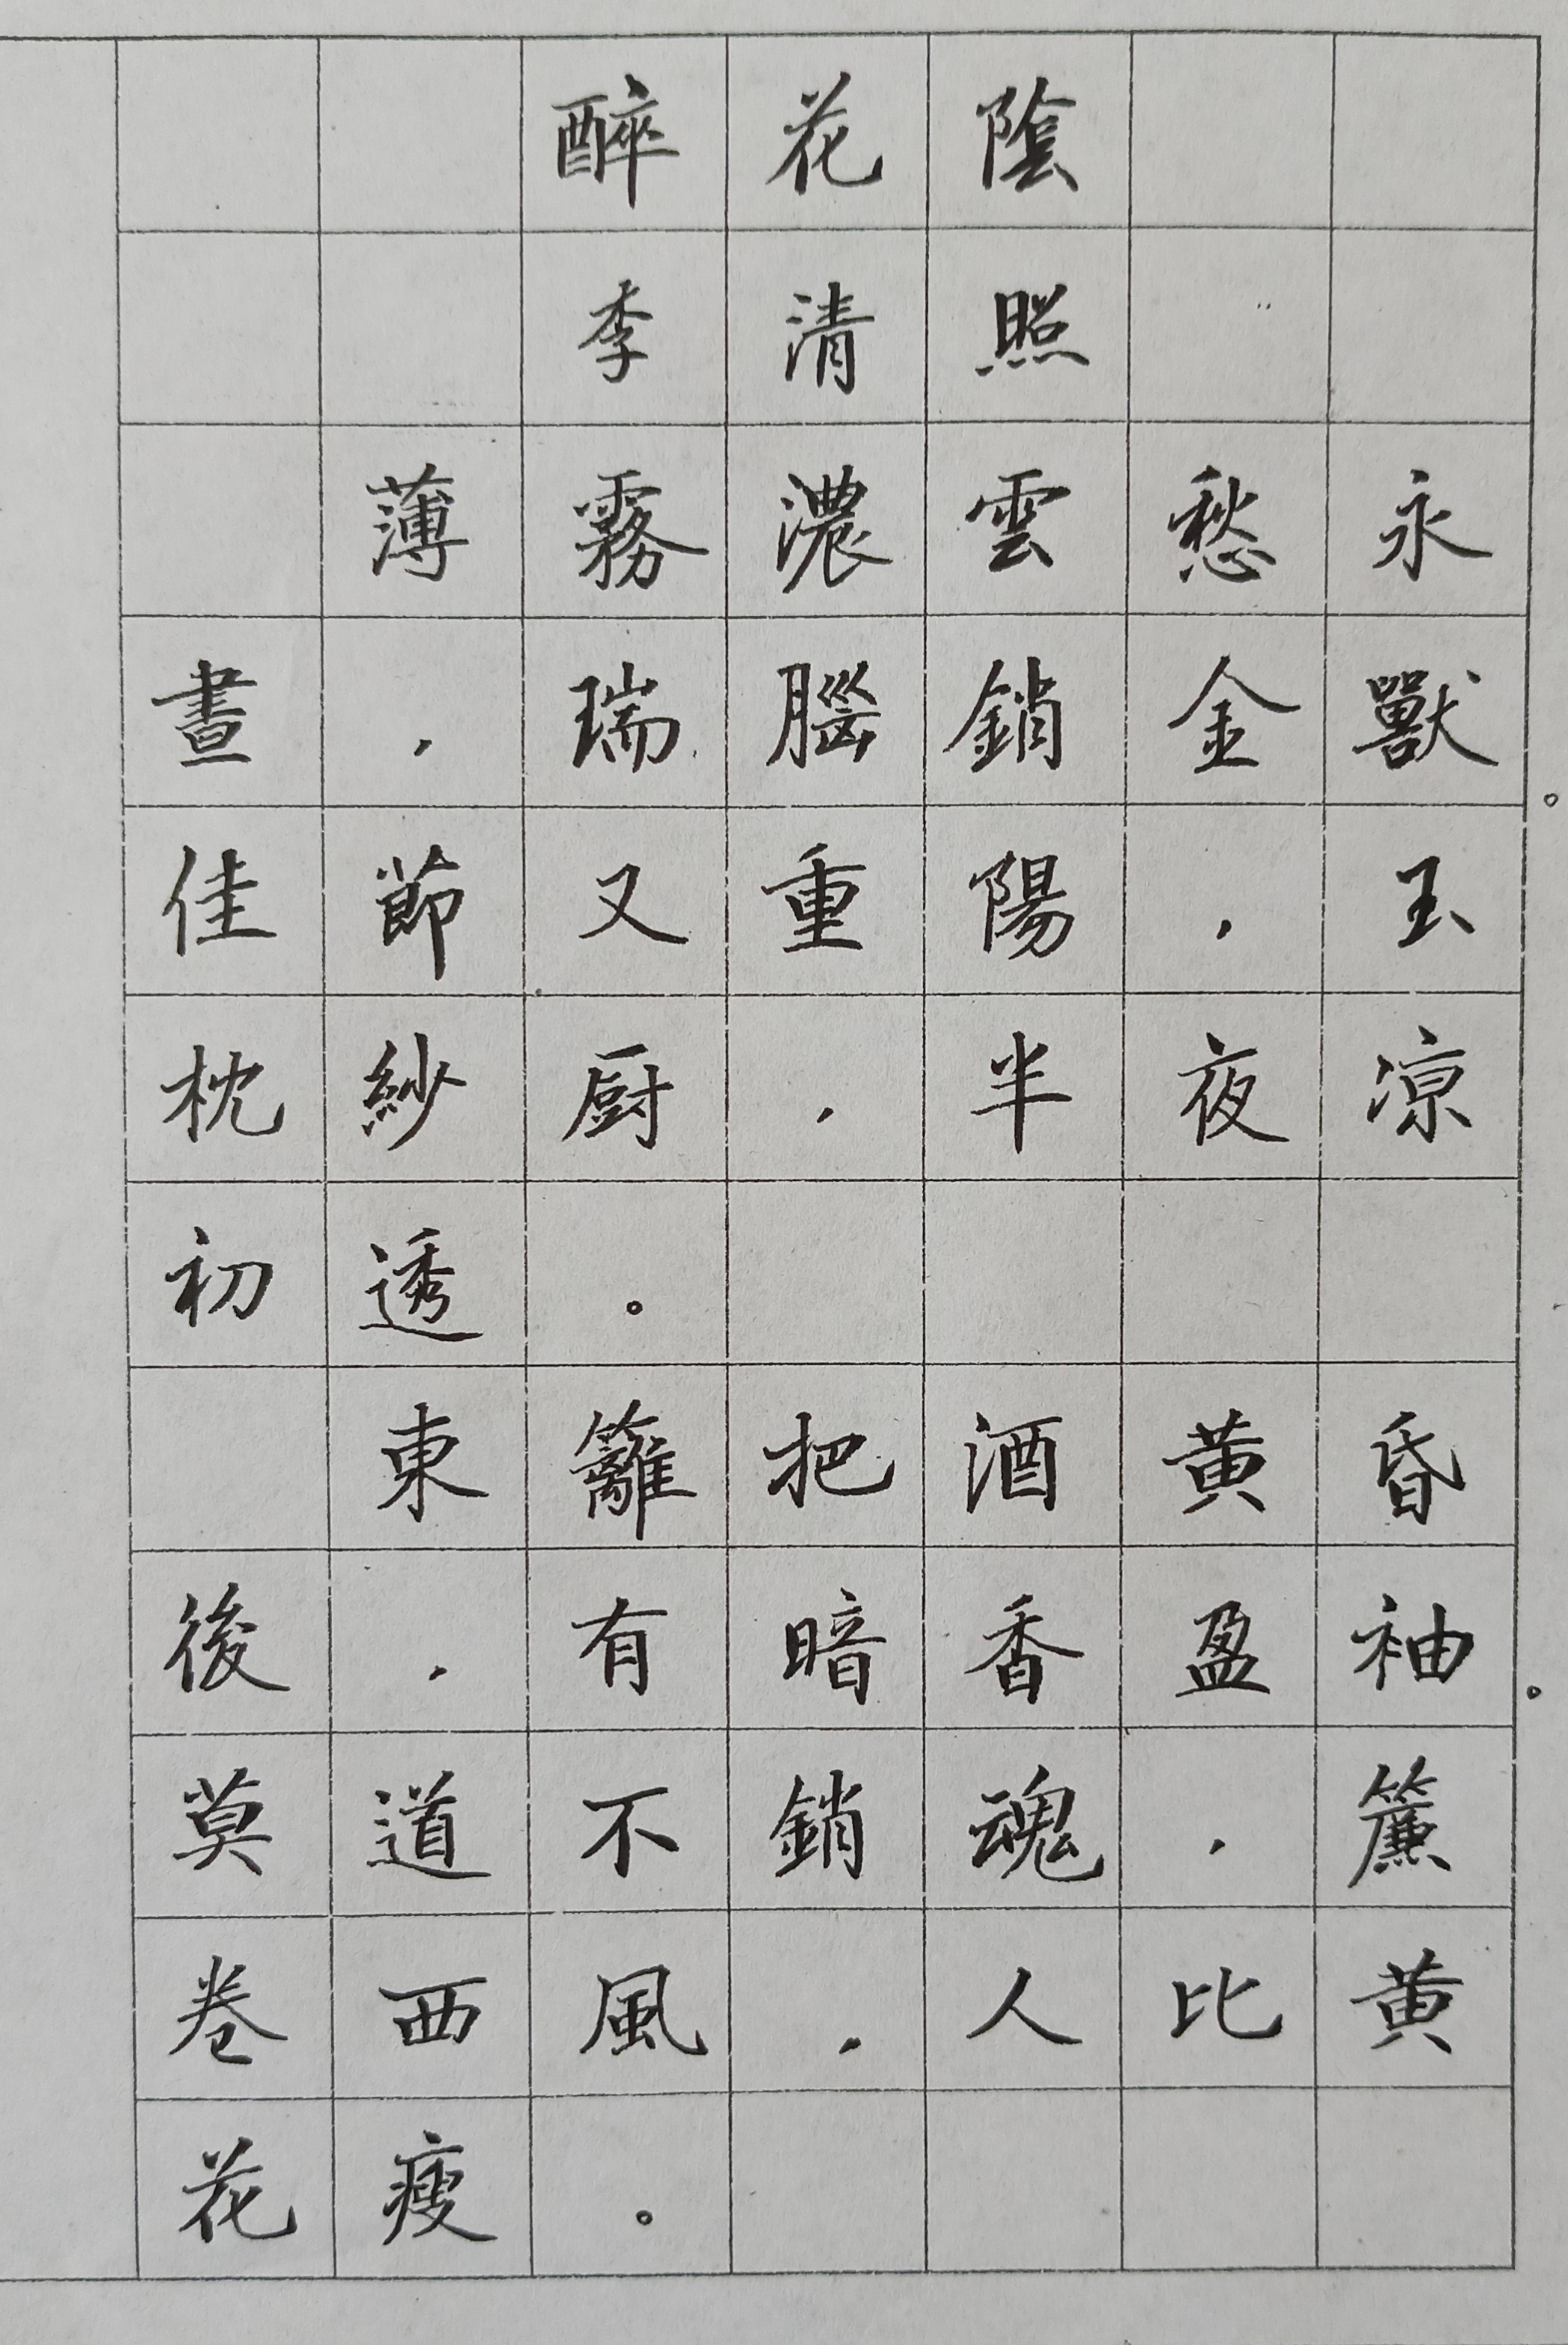 醉花陰
李清照
薄霧濃雲愁永
晝，瑞腦銷金獸。
佳節又重陽，玉
枕紗厨，半夜凉
初透。
東籬把酒黄昏
後，有暗香盈袖。
莫道不銷魂，簾
卷西風，人比黄
花瘦。